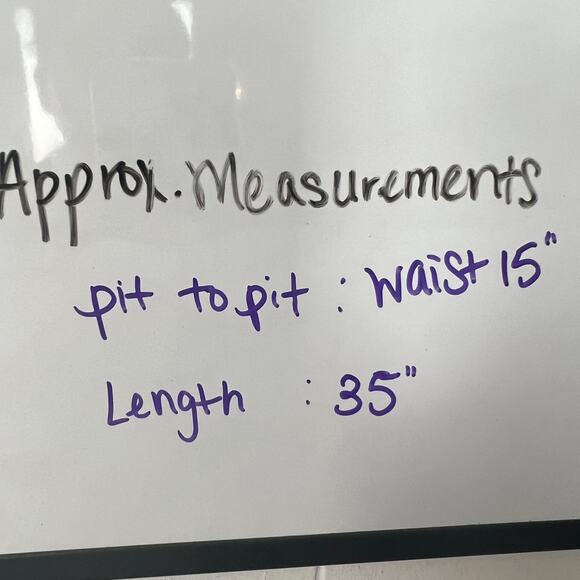 Approx. Measurements
pit to pit : Waist 15"
Length : 35"